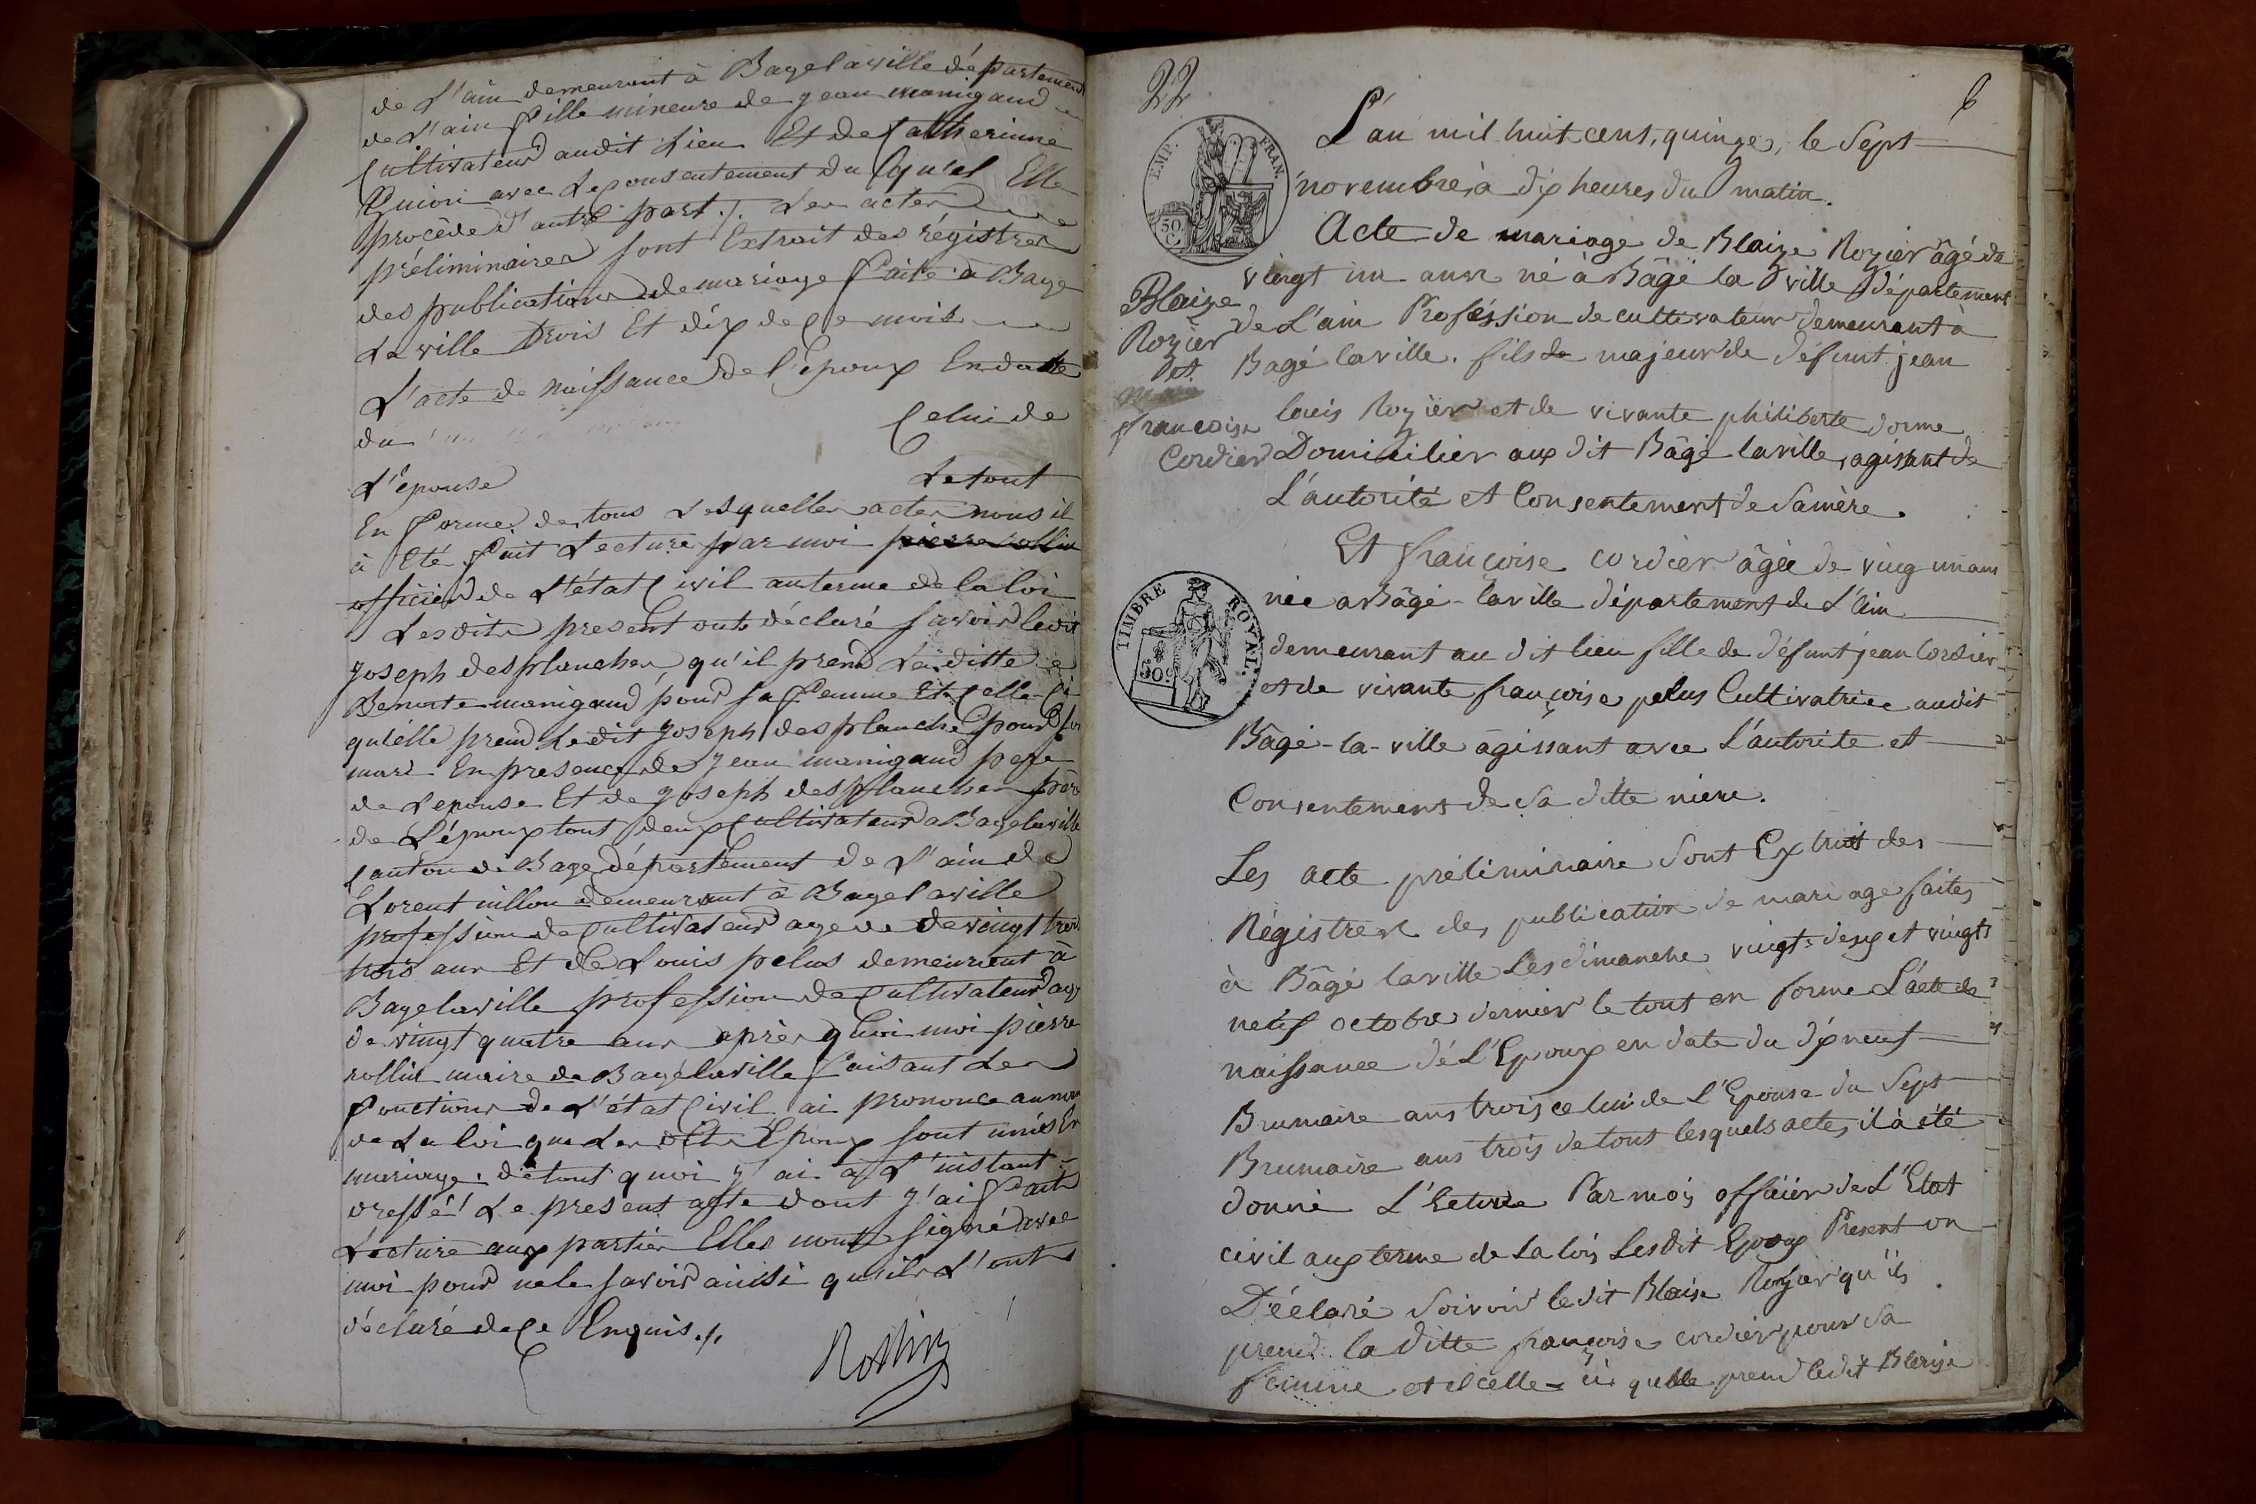 de L'ain demeurant à Bagelaville département
de L'ain fille mineure de jean manigaud
Cultivateur audit Lieu Et de Catherinne
Guion avec Le Consentement du Quel Elle
procède d'autre part ./. Les actes
préliminaires sont Extrait des régistres
des publications de mariage faite à Bage
La ville Trois Et dix de Ce mois
L'acte de naissance de l'époux En datte
du Celui de
L'épouse Le tout
En forme de tous Lesquelles actes nous il
à Eté fait Lecture par moi pierre rollin
officier de L'état Civil au terme de la loi
Lesdits present onts déclaré savoir ledit
joseph desplanches, qu'il prend La ditte
Benoite manigaud pour sa femme Et Celle Ci
qu'elle prend Ledit joseph desplanche pour son
mari En presence de jean manigaud pere
de L'epouse Et de joseph desplanches père
de L'époux tout deux Cultivateur a Bagelaville
Canton de Bage département de L'ain de
Lorent nillon demeurant à Bagelaville
profession de Cultivateur age de de vingt trois
trois ans Et de Louis pelus demeurent à
Bagelaville profession de Cultivateur age
de vingt quatre ans après quoi moi pierre
rollin maire de Bagélaville faisant Les
fonctions de L'état Civil ai prononce au nom
de La loi que Les dits Epoux sont unis En
mariage. de tout quoi j'ai à L'instant
dressé Le present acte dont j'ai fait
Lecture aux parties Elles nont signé avec
moi pour ne le savoir ainsi qu'ils L'ont
déclaré de Ce Enquis ./.
Rollin
22
6
EMP. FRAN.
50 C.
L'an mil huit cens, quinze, le Sept
novembre, à dix heures du matin.
Acte de mariage de Blaize Rozier âgé de
vingt un ans né à Bâgé la ville département
de L'ain Proféssion de cultivateur demeurant à
Bagé laville. fils de majeur de défunt jean
louis Rozier et de vivante philiberte dorme
Domicilier aux dit Bâgé laville, agissant de
L'autorité et Consentement de Samère.
Blaize
Rozier
et
françoise
Cordier
Et françoise cordier âgée de ving un ans
née a Bâgé-laville département de L'ain
demeurant au dit lieu fille de défunt jean Cordier
et de vivante françoise pelus Cultivatrice audit
Bâgé-la-ville âgissant avec L'autorite et
Consentement de Sa ditte mère.
TIMBRE ROYAL.
50 c
Les acte préliminaire Sont Extrait des
Régistres des publication de mariage faites
à Bâgé laville Les dimanche vingt-deux et vingt
neuf octobre dernier le tout en forme L'acte de
naissance dé L'Epoux en date du dix neuf
Brumaire ans trois celui de L'Epouse du Sept
Brumaire ans trois de tout lesquels actes, il à été
donné L'Ecture Par moi, officier de L'Etat
civil aux terme de La loi, Lesdit Epoux Present on
Déclaré Soivoir ledit Blaise Rozier qu'ils
prend la ditte françoise cordier pour Sa
femme et icelle-ci quelle prend ledit Blaise